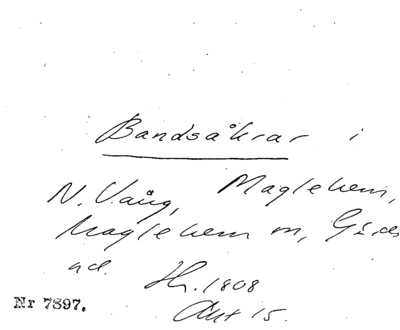 Bandsåkrar i
N. Vång, Maglehem,
Maglehem m,
Hr. 1808
Akt 15.
Nr 7897.